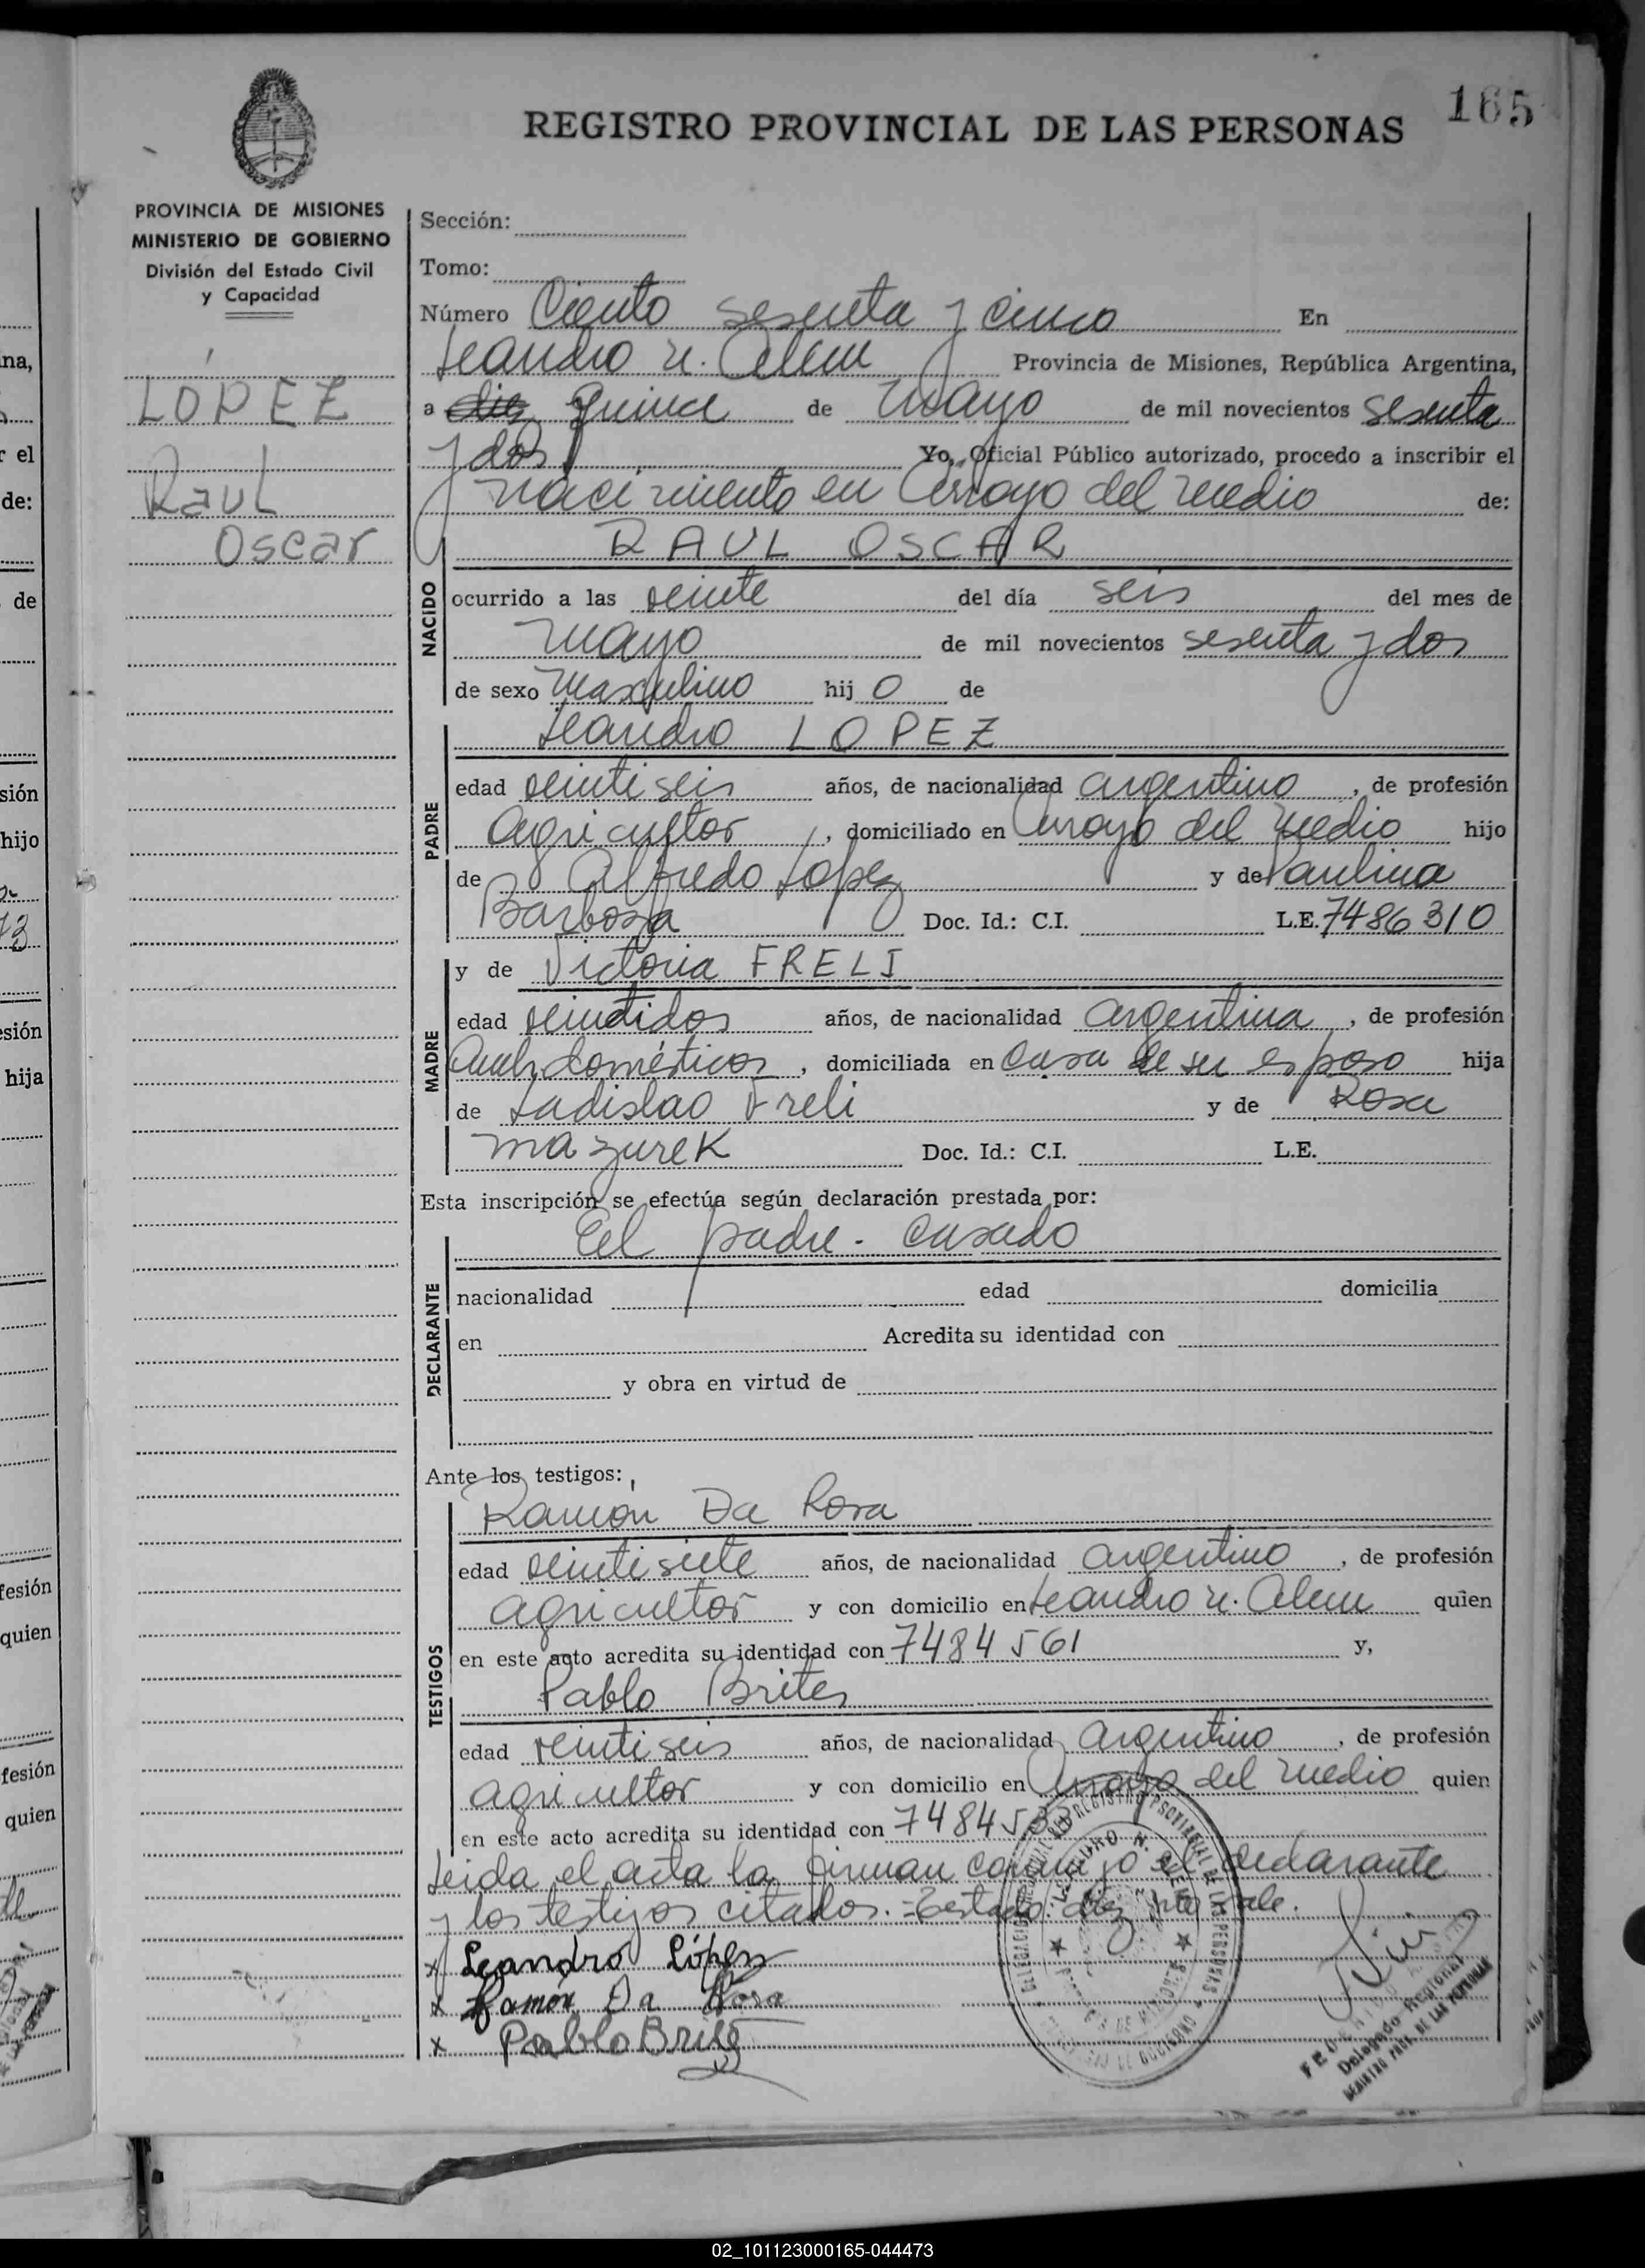 165
REGISTRO PROVINCIAL DE LAS PERSONAS
PROVINCIA DE MISIONES
MINISTERIO DE GOBIERNO
División del Estado Civil
y Capacidad
LOPEZ
Raul
Oscar
Sección:
Tomo:
Número Ciento sesenta y cinco En
Leandro N. Alem Provincia de Misiones, República Argentina,
a diez quince de Mayo de mil novecientos sesenta
y dos Yo, Oficial Público autorizado, procedo a inscribir el
nacimiento en Arroyo del Medio de:
RAUL OSCAR
NACIDO
ocurrido a las veinte del día seis del mes de
mayo de mil novecientos sesenta y dos
de sexo masculino hij o de
Leandro LOPEZ
PADRE
edad veintiseis años, de nacionalidad argentino, de profesión
agricultor, domiciliado en Arroyo del Medio hijo
de Alfredo Lopez y de Paulina
Barbosa Doc. Id.: C.I. L.E. 7486310
MADRE
y de Victoria FRELI
edad veintidos años, de nacionalidad argentina, de profesión
domésticos, domiciliada en casa de su esposo hija
de Ladislao Freli y de Rosa
Mazurek Doc. Id.: C.I. L.E.
Esta inscripción se efectúa según declaración prestada por:
El padre - casado
DECLARANTE
nacionalidad edad domicilia
en Acredita su identidad con
y obra en virtud de
Ante los testigos:
TESTIGOS
Ramón Da Rosa
edad veintisiete años, de nacionalidad argentino, de profesión
agricultor y con domicilio en Leandro N. Alem quien
en este acto acredita su identidad con 7484561 y,
Pablo Brites
edad veintiseis años, de nacionalidad argentino, de profesión
agricultor y con domicilio en Arroyo del Medio quien
en este acto acredita su identidad con 7484533
Leida el acta la firman conmigo el declarante
y los testigos citados.=Testado: diez no vale.
x Leandro López
x Ramón Da Rosa
x Pablo Brites
Delegado Regional
REGISTRO PROV. DE LAS PERSONAS
02_101123000165-044473